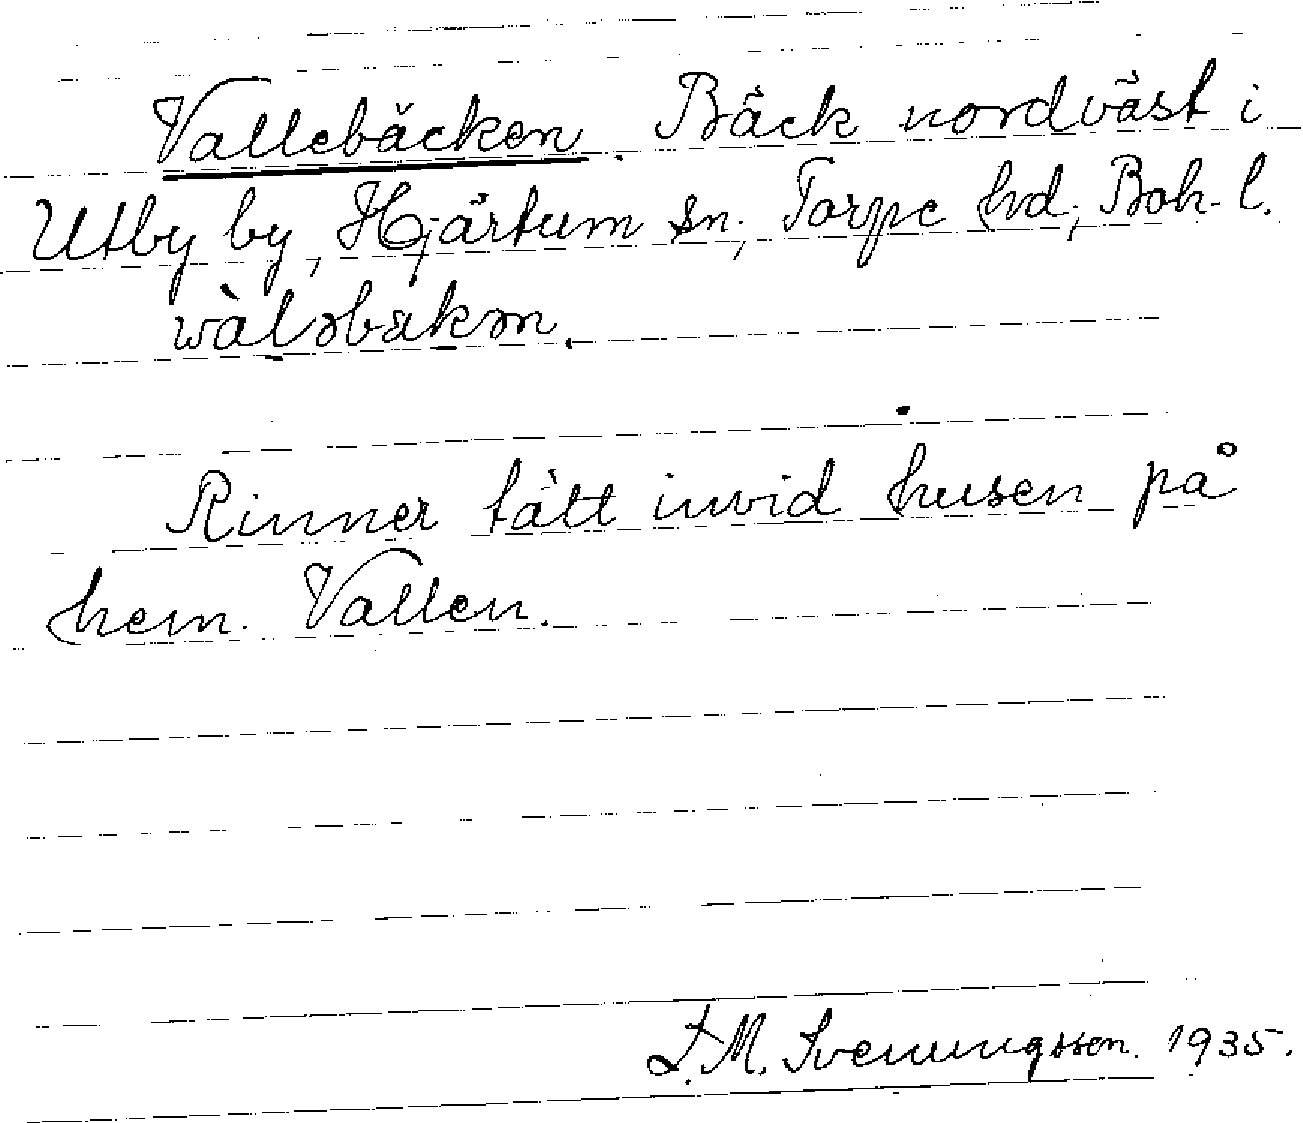 Vallebäcken. Bäck nordväst i
Utby by, Hjärtum sn, Torpe hd, Boh. l.
wàləbækən.
Rinner tätt invid husen på
hem. Vallen.
F. M. Svenungsson. 1935.